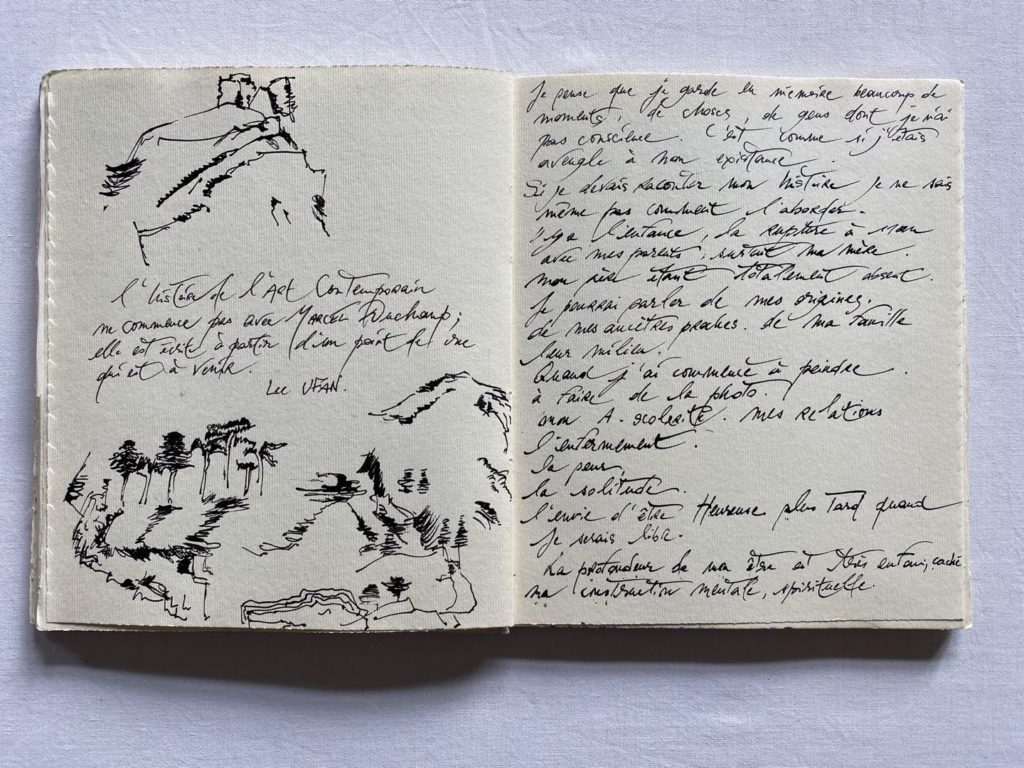 l'histoire de l'Art Contemporain
ne commence pas avec MARCEL Duchamp;
elle est écrite à partir d'un point de vue
qui est à venir.
Lee UFAN.
Je pense que je garde en mémoire beaucoup de
moments, de choses, de gens dont je n'ai
pas conscience. C'est comme si j'étais
aveugle à mon existance.
Si je devais raconter mon histoire je ne sais
même pas comment l'aborder.
Il y a l'enfance, la rupture à
avec mes parents, surtout ma mère.
mon père étant totalement absent.
Je pourrai parler de mes origines.
de mes ancêtres proches. de ma famille
leur milieu.
Quand j'ai commencé à peindre.
à faire de la photo.
mon A. scolarité. mes relations
l'enfermement.
la peur.
la solitude.
l'envie d'être Heureuse plus tard quand
je serais libre.
La profondeur de mon être est très enfoui, caché
ma construction mentale, spirituelle